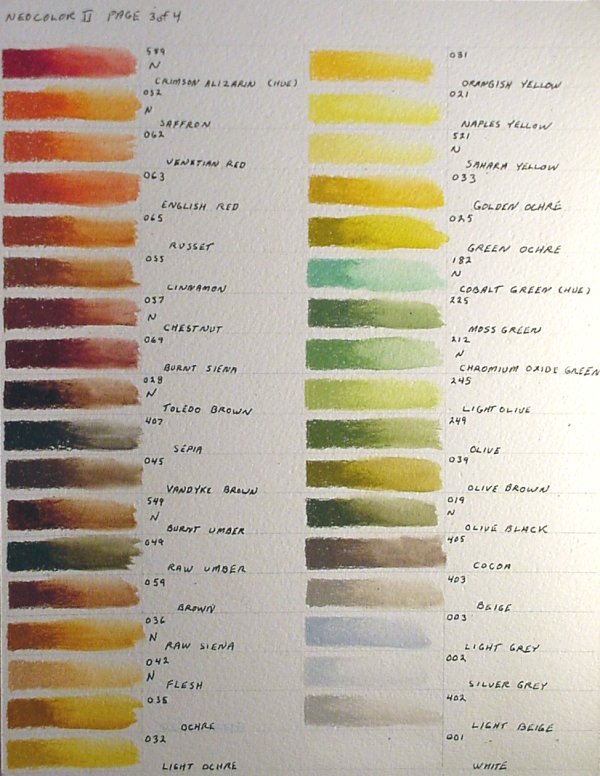 NEOCOLOR II PAGE 3 of 4
589
N
CRIMSON ALIZARIN (HUE)
052
N
SAFFRON
062
VENETIAN RED
063
ENGLISH RED
065
RUSSET
055
CINNAMON
057
N
CHESTNUT
069
BURNT SIENA
028
N
TOLEDO BROWN
407
SEPIA
045
VANDYKE BROWN
549
N
BURNT UMBER
049
RAW UMBER
059
BROWN
036
N
RAW SIENA
042
N
FLESH
035
OCHRE
032
LIGHT OCHRE
031
ORANGISH YELLOW
021
NAPLES YELLOW
521
N
SAHARA YELLOW
033
GOLDEN OCHRE
025
GREEN OCHRE
182
N
COBALT GREEN (HUE)
225
MOSS GREEN
212
N
CHROMIUM OXIDE GREEN
245
LIGHT OLIVE
249
OLIVE
039
OLIVE BROWN
019
N
OLIVE BLACK
405
COCOA
403
BEIGE
003
LIGHT GREY
002
SILVER GREY
402
LIGHT BEIGE
001
WHITE